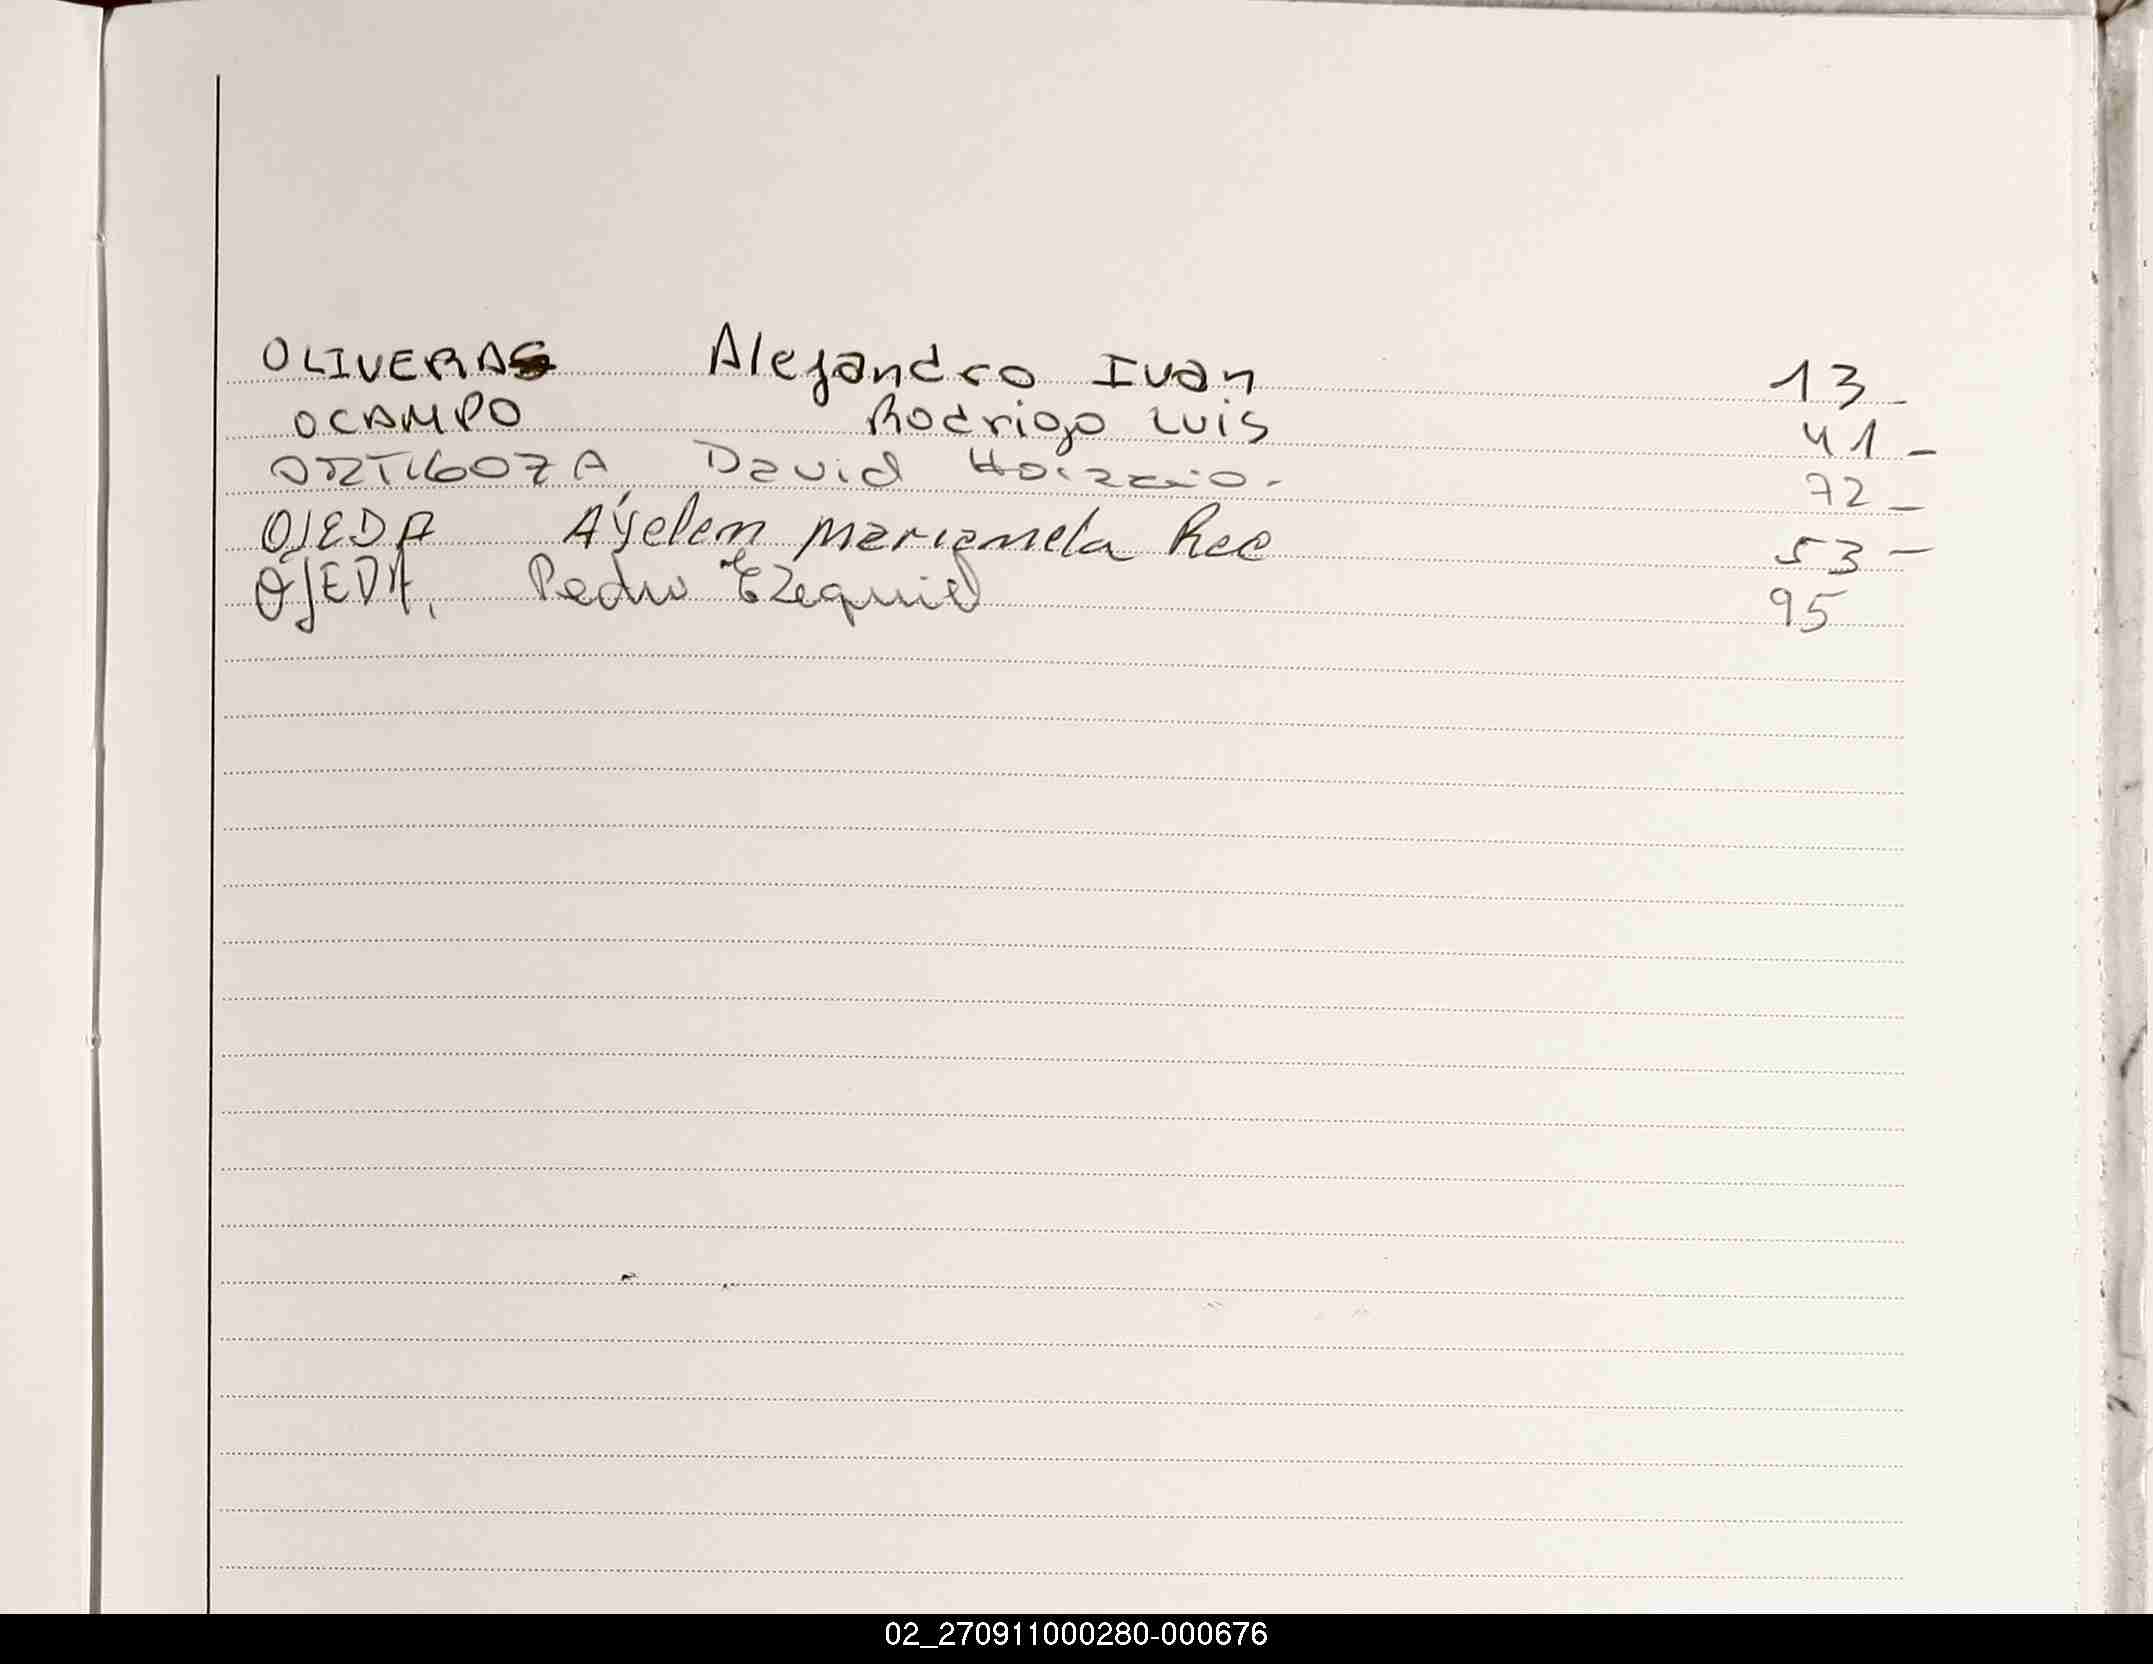 OLIVERAS Alejandro Ivan 13_
OCAMPO Rodrigo Luis 41_
ORTIGOZA David Horacio. 72_
OJEDA Ayelem Marianela Rec 53-
OJEDA, Pedro Ezequiel 95
02_270911000280-000676